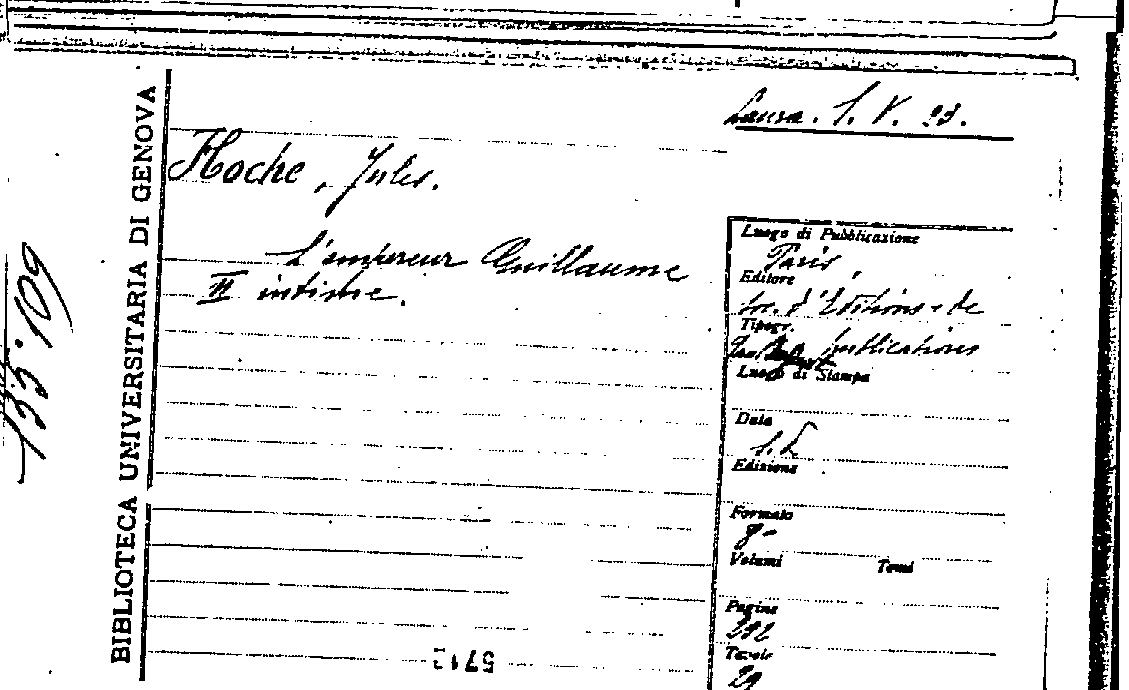 Laura. S. V. 23.
Hoche, Jules.
L'empereur Guillaume
II intime.
BIBLIOTECA UNIVERSITARIA DI GENOVA
Luogo di Pubblicazione
Paris,
Editore
Soc. d'Editions et de
Tipogr.
publications
Luogo di Stampa
Data
s.d.
Edizione
Formato
8-
Volumi Tomi
Pagine
292
Tavole
29